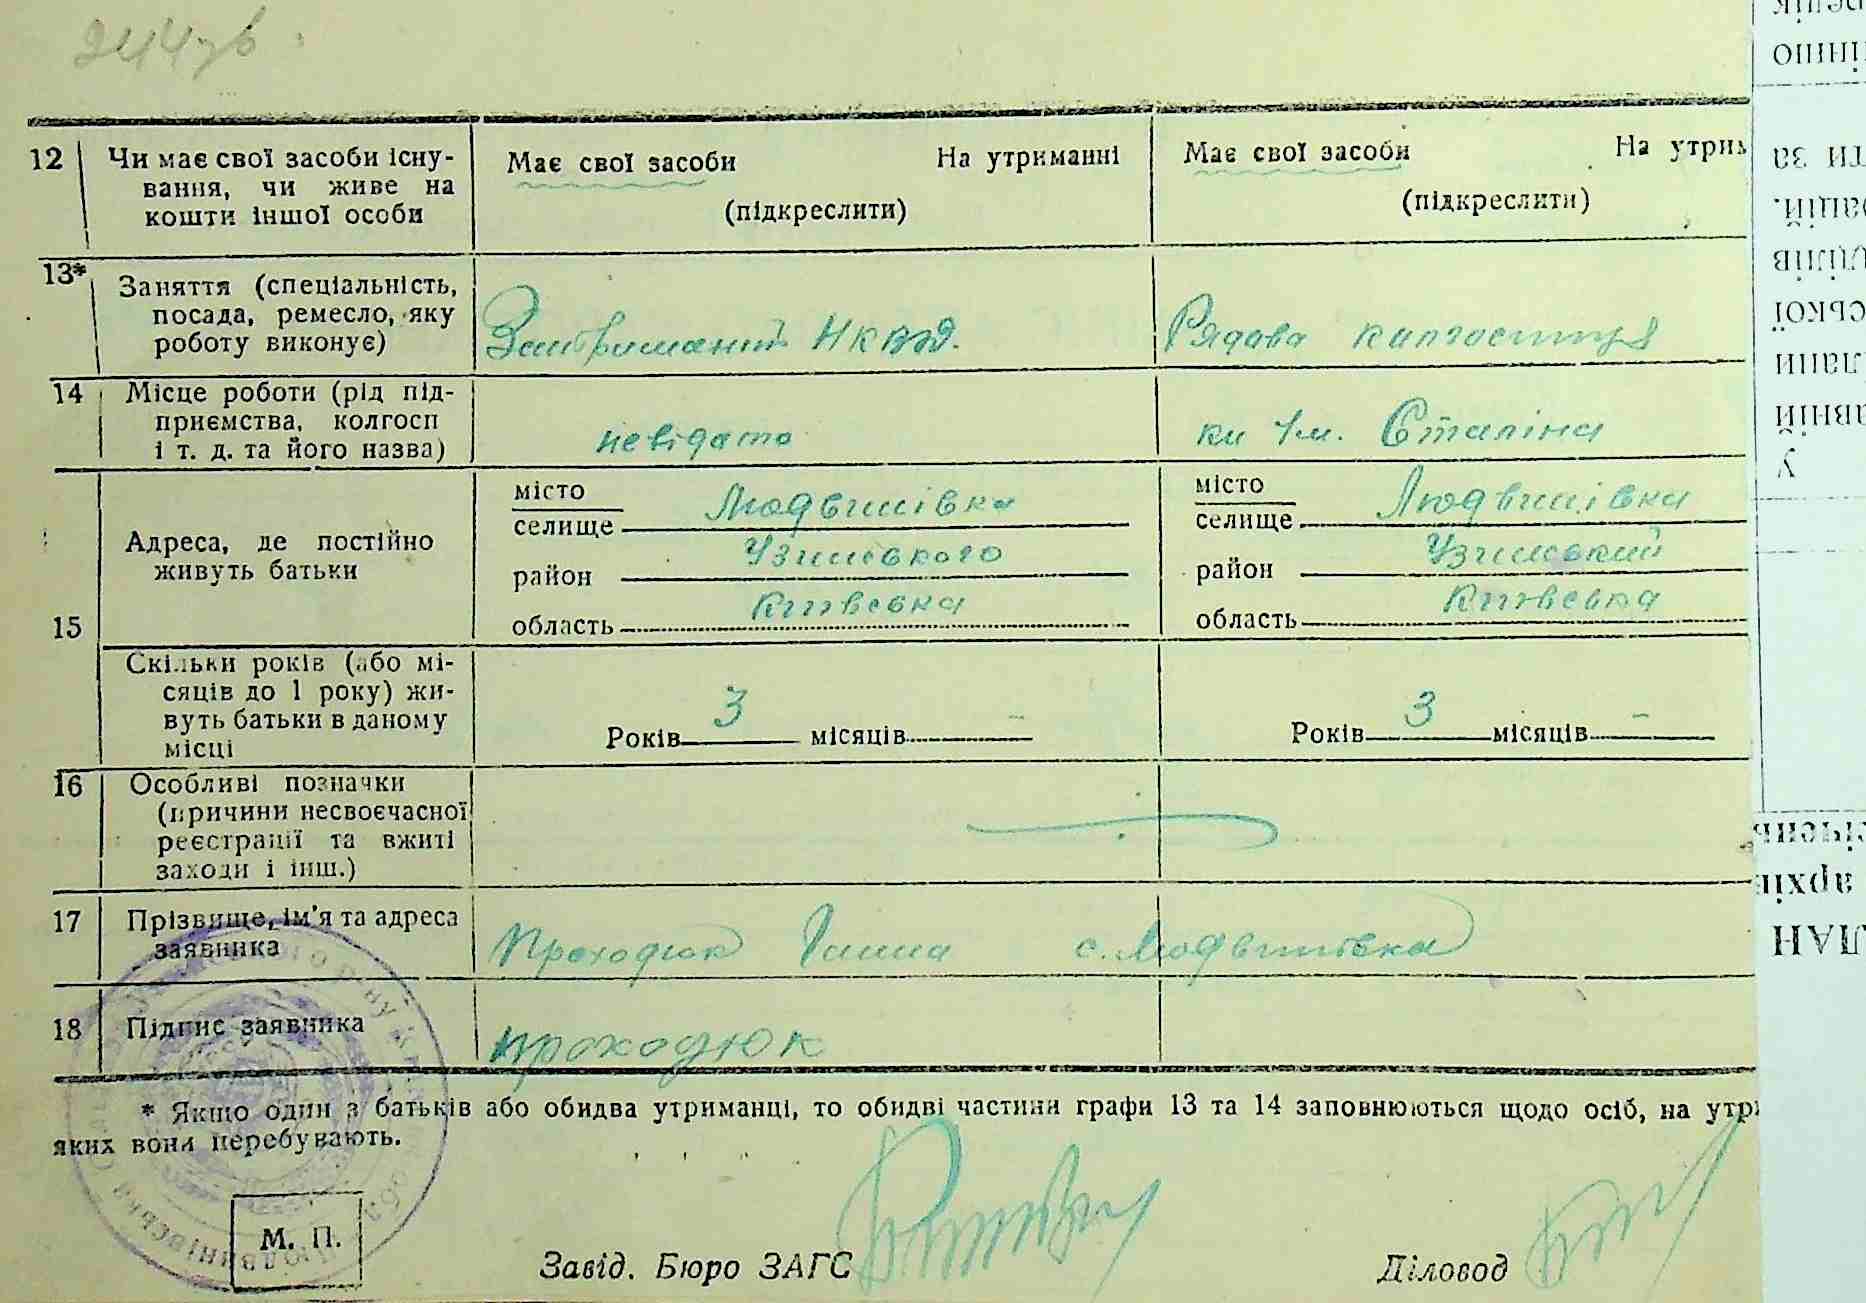 244зв.
12 Чи має свої засоби існу- Має свої засоби На утриманні Має свої засоби На утрим
вання, чи живе на
кошти іншої особи (підкреслити) (підкреслити)
13* Заняття (спеціальність,
посада, ремесло, яку Затриманий НКВД. Рядова колгоспниця
роботу виконує)
14 Місце роботи (рід під-
приємства, колгосп невідато кл ім. Сталіна
і т. д. та його назва)
15 Адреса, де постійно
живуть батьки
місто Людвинівка місто Людвинівка
селище селище
район Узинського район Узинський
область Київська область Київська
Скільки років (або мі-
сяців до 1 року) жи-
вуть батьки в даному Років 3 місяців - Років 3 місяців -
місці
16 Особливі позначки
(причини несвоєчасної
реєстрації та вжиті
заходи і інш.)
17 Прізвище, ім'я та адреса
заявника Проходюк Ганна с. Людвинівка
18 Підпис заявника проходюк
* Якщо один з батьків або обидва утриманці, то обидві частини графи 13 та 14 заповнюються щодо осіб, на утри
яких вони перебувають.
М. П.
Завід. Бюро ЗАГС Діловод